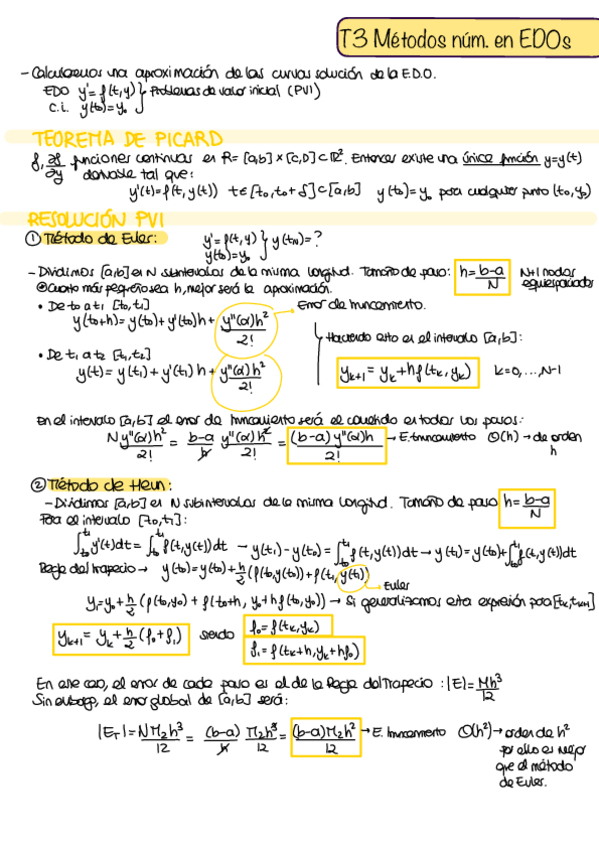 T3 Métodos núm. en EDOs
- Calcularemos una aproximación de las curvas solución de la E.D.O.
EDO y' = f(t,y) } Problemas de valor inicial (PVI)
c.i. y(t₀) = y₀
TEOREMA DE PICARD
f, ∂f/∂y funciones continuas en R = [a,b] × [c,D] ⊂ ℝ². Entonces existe una única función y = y(t)
derivable tal que:
y'(t) = f(t, y(t)) t ∈ [t₀, t₀ + δ] ⊂ [a,b] y(t₀) = y₀ para cualquier punto (t₀, y₀)
RESOLUCIÓN PVI
① Método de Euler: y' = f(t,y) } y(t_N) = ?
y(t₀) = y₀
- Dividimos [a,b] en N subintervalos de la misma longitud. Tamaño de paso: h = b-a/N N+1 nodos equiespaciados
Cuanto más pequeño sea h, mejor será la aproximación.
• De t₀ a t₁ [t₀, t₁] Error de truncamiento.
y(t₀+h) = y(t₀) + y'(t₀)h + y''(α)h²/2!
Haciendo esto en el intervalo [a,b]:
• De t₁ a t₂ [t₁, t₂]
y(t) = y(t₁) + y'(t₁)h + y''(α)h²/2! y_{k+1} = y_k + hf(t_k, y_k) k = 0, ..., N-1
En el intervalo [a,b] el error de truncamiento será el cometido en todos los pasos:
N y''(α)h²/2! = b-a/h y''(α)h²/2! = (b-a) y''(α)h/2! → E. truncamiento O(h) → de orden h
② Método de Heun:
- Dividimos [a,b] en N subintervalos de la misma longitud. Tamaño de paso h = b-a/N
Para el intervalo [t₀, t₁]:
∫_{t₀}^{t₁} y'(t)dt = ∫_{t₀}^{t₁} f(t,y(t))dt → y(t₁) - y(t₀) = ∫_{t₀}^{t₁} f(t,y(t))dt → y(t₁) = y(t₀) + ∫_{t₀}^{t₁} f(t,y(t))dt
Regla del trapecio → y(t₀) = y(t₀) + h/2 (f(t₀,y(t₀)) + f(t₁, y(t₁))
Euler
y₁ = y₀ + h/2 (f(t₀,y₀) + f(t₀+h, y₀+hf(t₀,y₀)) → Si generalizamos esta expresión para [t_k, t_{k+1}]
y_{k+1} = y_k + h/2 (f₀ + f₁) siendo f₀ = f(t_k, y_k)
f₁ = f(t_k + h, y_k + hf₀)
En ese caso, el error de cada paso es el de la Regla del Trapecio: |E| = Mh³/12
Sin embargo, el error global de [a,b] será:
|E_T| = N M₂h³/12 = (b-a)/h M₂h³/12 = (b-a)M₂h²/12 → E. truncamiento O(h²) → orden de h²
por ello es mejor
que el método
de Euler.